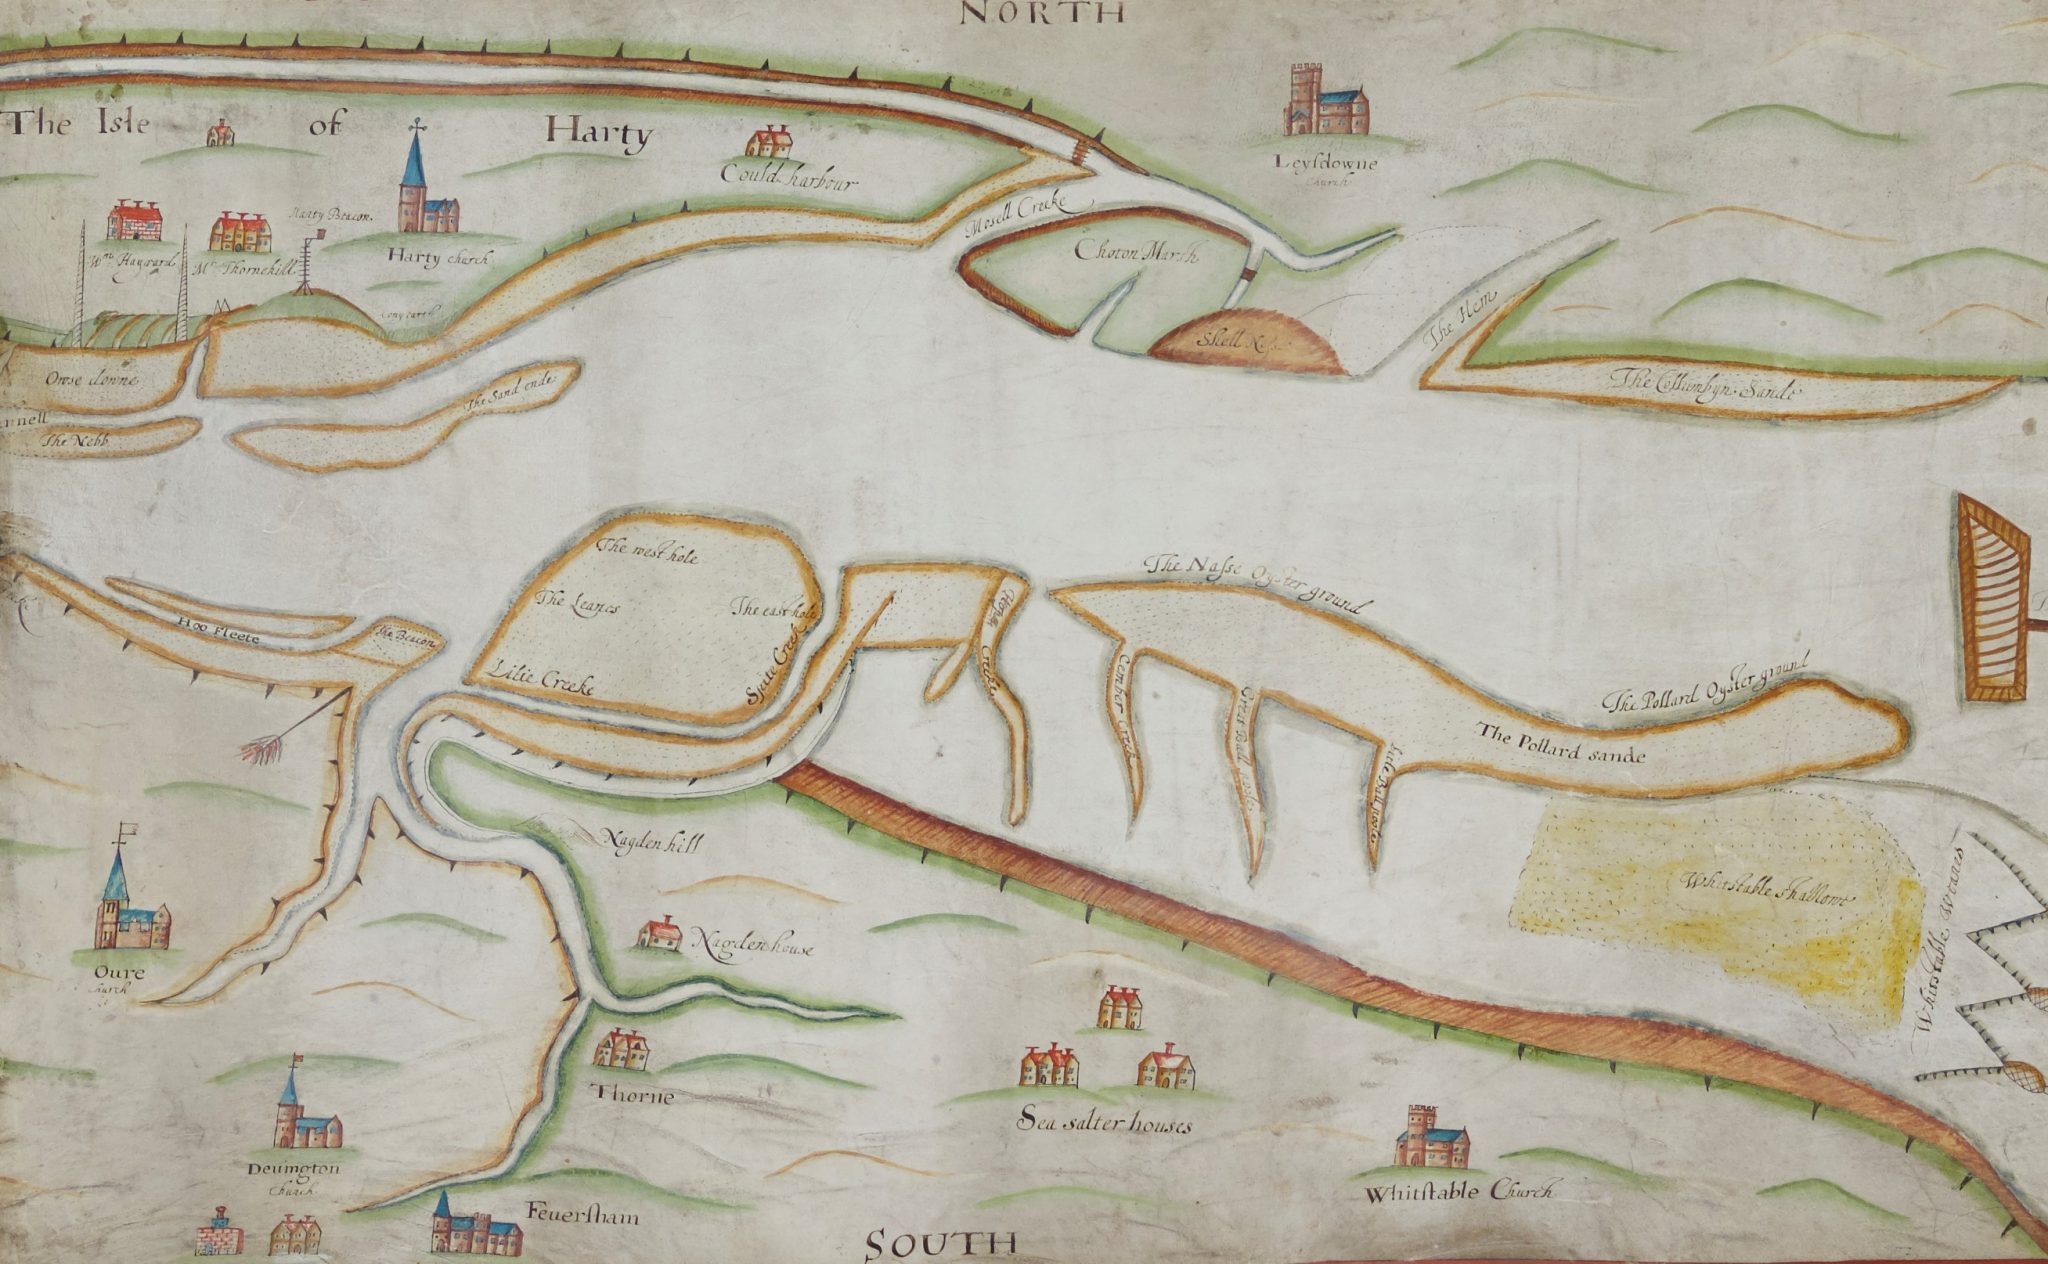 NORTH
The Isle of Harty
Could harbour
Leysdowne
Church
Harty Beacon.
Wm Hayward
Mr Thornehill
Harty church
Cony earth
Mosell Creeke
Choton Marsh
Shell Ness
The Hem
The Collumbyn Sande
The Sand ende
The Nebb
The west hole
The Leanes
The east hole
Lilie Creeke
Spite Creek
Hoo Fleete
the Beacon
Creeke
The Nasse Oyster ground
Creek
The Pollard Oyster ground
The Pollard sande
Whitstable shallowe
Whitstable weares
Nagden hill
Nagden house
Oure
Church
Thorne
Sea salter houses
Deuington
Church
Feuersham
Whitstable Church
SOUTH